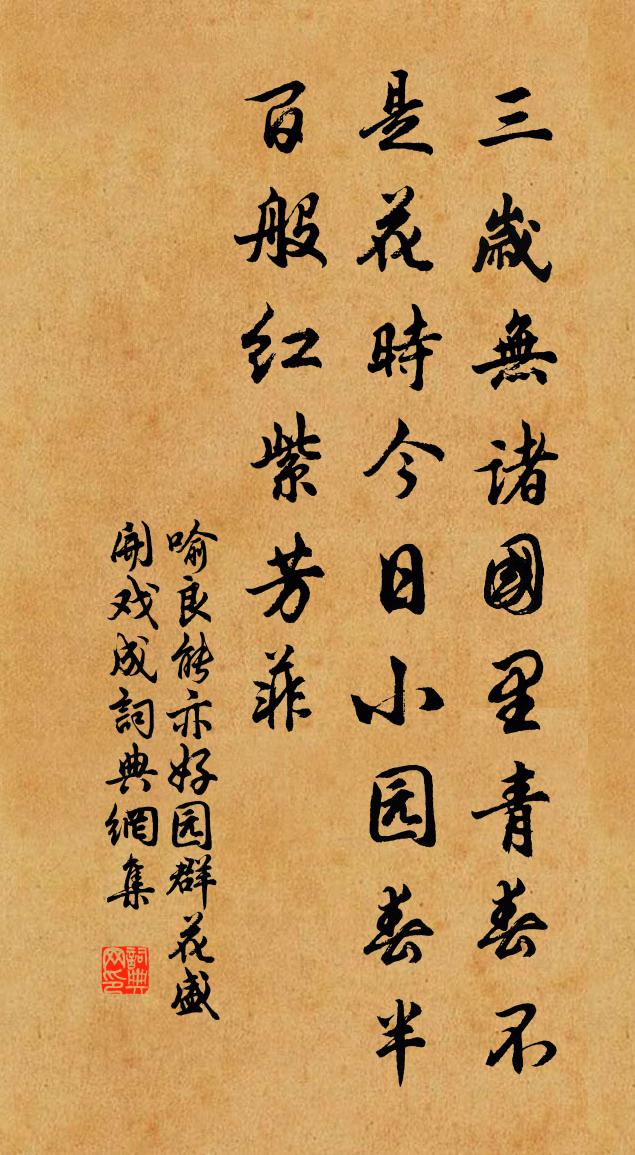 三歲無諸國里青春不
是花時今日小园春半
百般紅紫芳菲
喻良能亦好园群花盛
開戏成詞典網集
詞典
网印